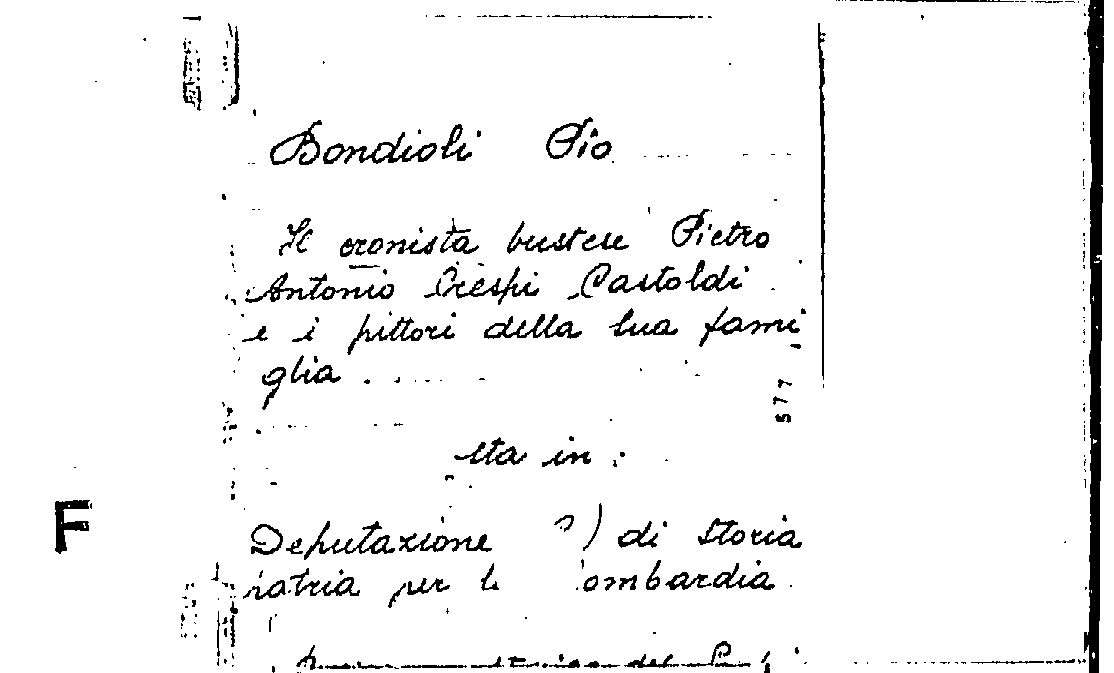 Bondioli Pio
Il cronista bustese Pietro
Antonio Crespi Castoldi
e i pittori della sua fami
glia
577
sta in :
F
Deputazione ) di storia
patria per l ombardia